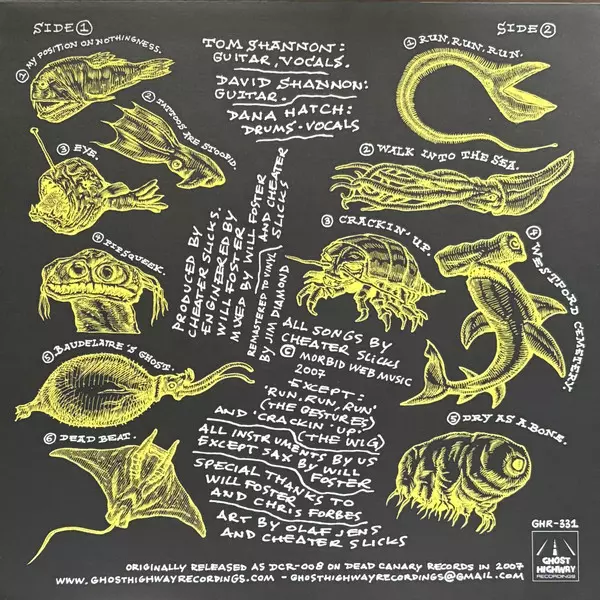 SIDE 1
1 MY POSITION ON NOTHINGNESS.
2 TATTOOS ARE STOOPID.
3 EYE.
4 PIPSQUEEK.
5 BAUDELAIRE'S GHOST.
6 DEAD BEAT.
TOM SHANNON:
GUITAR, VOCALS.
DAVID SHANNON:
GUITAR.
DANA HATCH:
DRUMS-VOCALS
PRODUCED BY
CHEATER SLICKS.
ENGINEERED BY
WILL FOSTER
MIXED BY WILL FOSTER
AND CHEATER
SLICKS
REMASTERED TO VINYL
BY JIM DIAMOND
ALL SONGS BY
CHEATER SLICKS
© MORBID WEB MUSIC
2007
EXCEPT:
'RUN, RUN, RUN'
(THE GESTURES)
AND 'CRACKIN' UP'
(THE WIG)
ALL INSTRUMENTS BY US
EXCEPT SAX BY WILL
FOSTER
SPECIAL THANKS TO
WILL FOSTER
AND CHRIS FORBES
ART BY OLAF JENS
AND CHEATER SLICKS
SIDE 2
1 RUN, RUN, RUN.
2 WALK INTO THE SEA.
3 CRACKIN' UP.
4 WESTFORD CEMETERY.
5 DRY AS A BONE.
GHR-331
GHOST
HIGHWAY
RECORDINGS
ORIGINALLY RELEASED AS DCR-008 ON DEAD CANARY RECORDS IN 2007
WWW.GHOSTHIGHWAYRECORDINGS.COM - GHOSTHIGHWAYRECORDINGS@GMAIL.COM